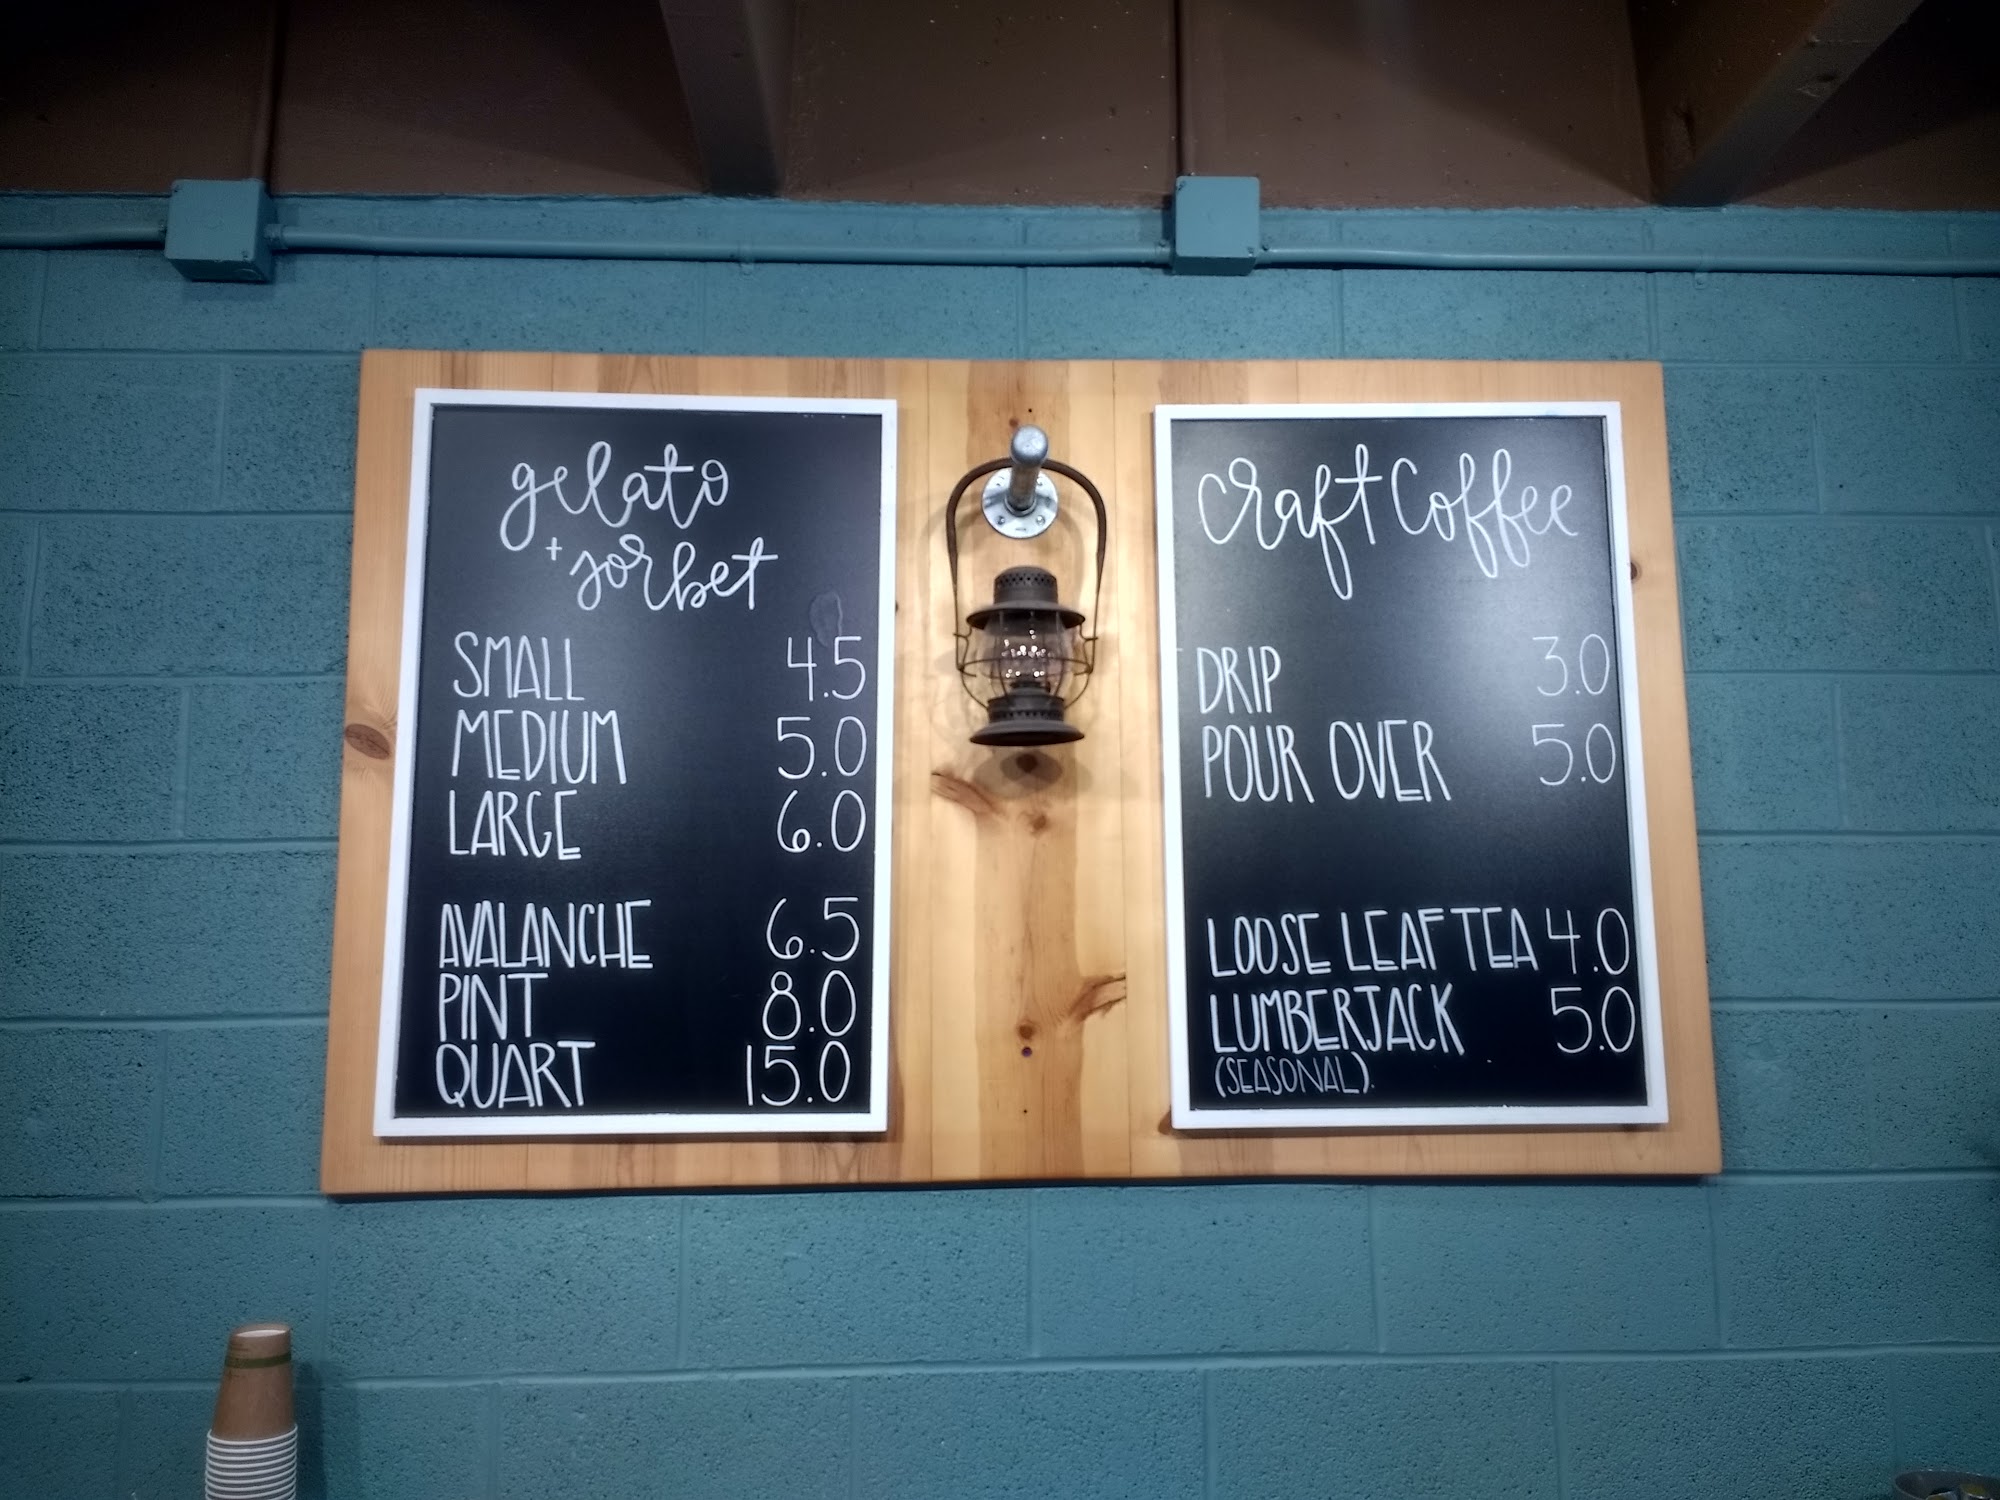 gelato
+ sorbet
SMALL 4.5
MEDIUM 5.0
LARGE 6.0
AVALANCHE 6.5
PINT 8.0
QUART 15.0
Craft Coffee
DRIP 3.0
POUR OVER 5.0
LOOSE LEAF TEA 4.0
LUMBERJACK 5.0
(SEASONAL).